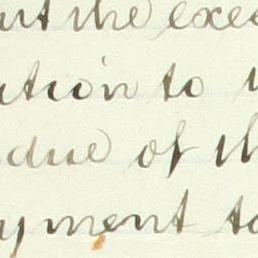 ut the exe
ation to
due of th
yment to